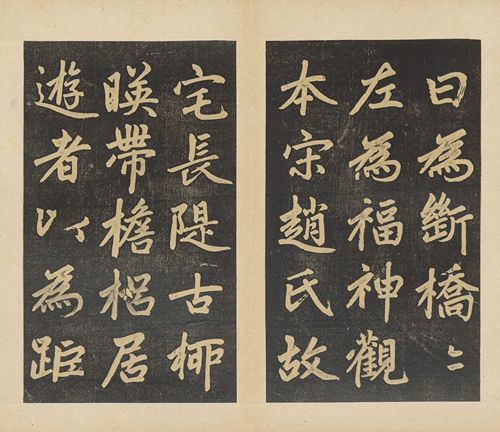 曰為斷橋〻
左為福神觀
本宋趙氏故
宅長隄古桺
暎帶檐梠居
遊者以為距